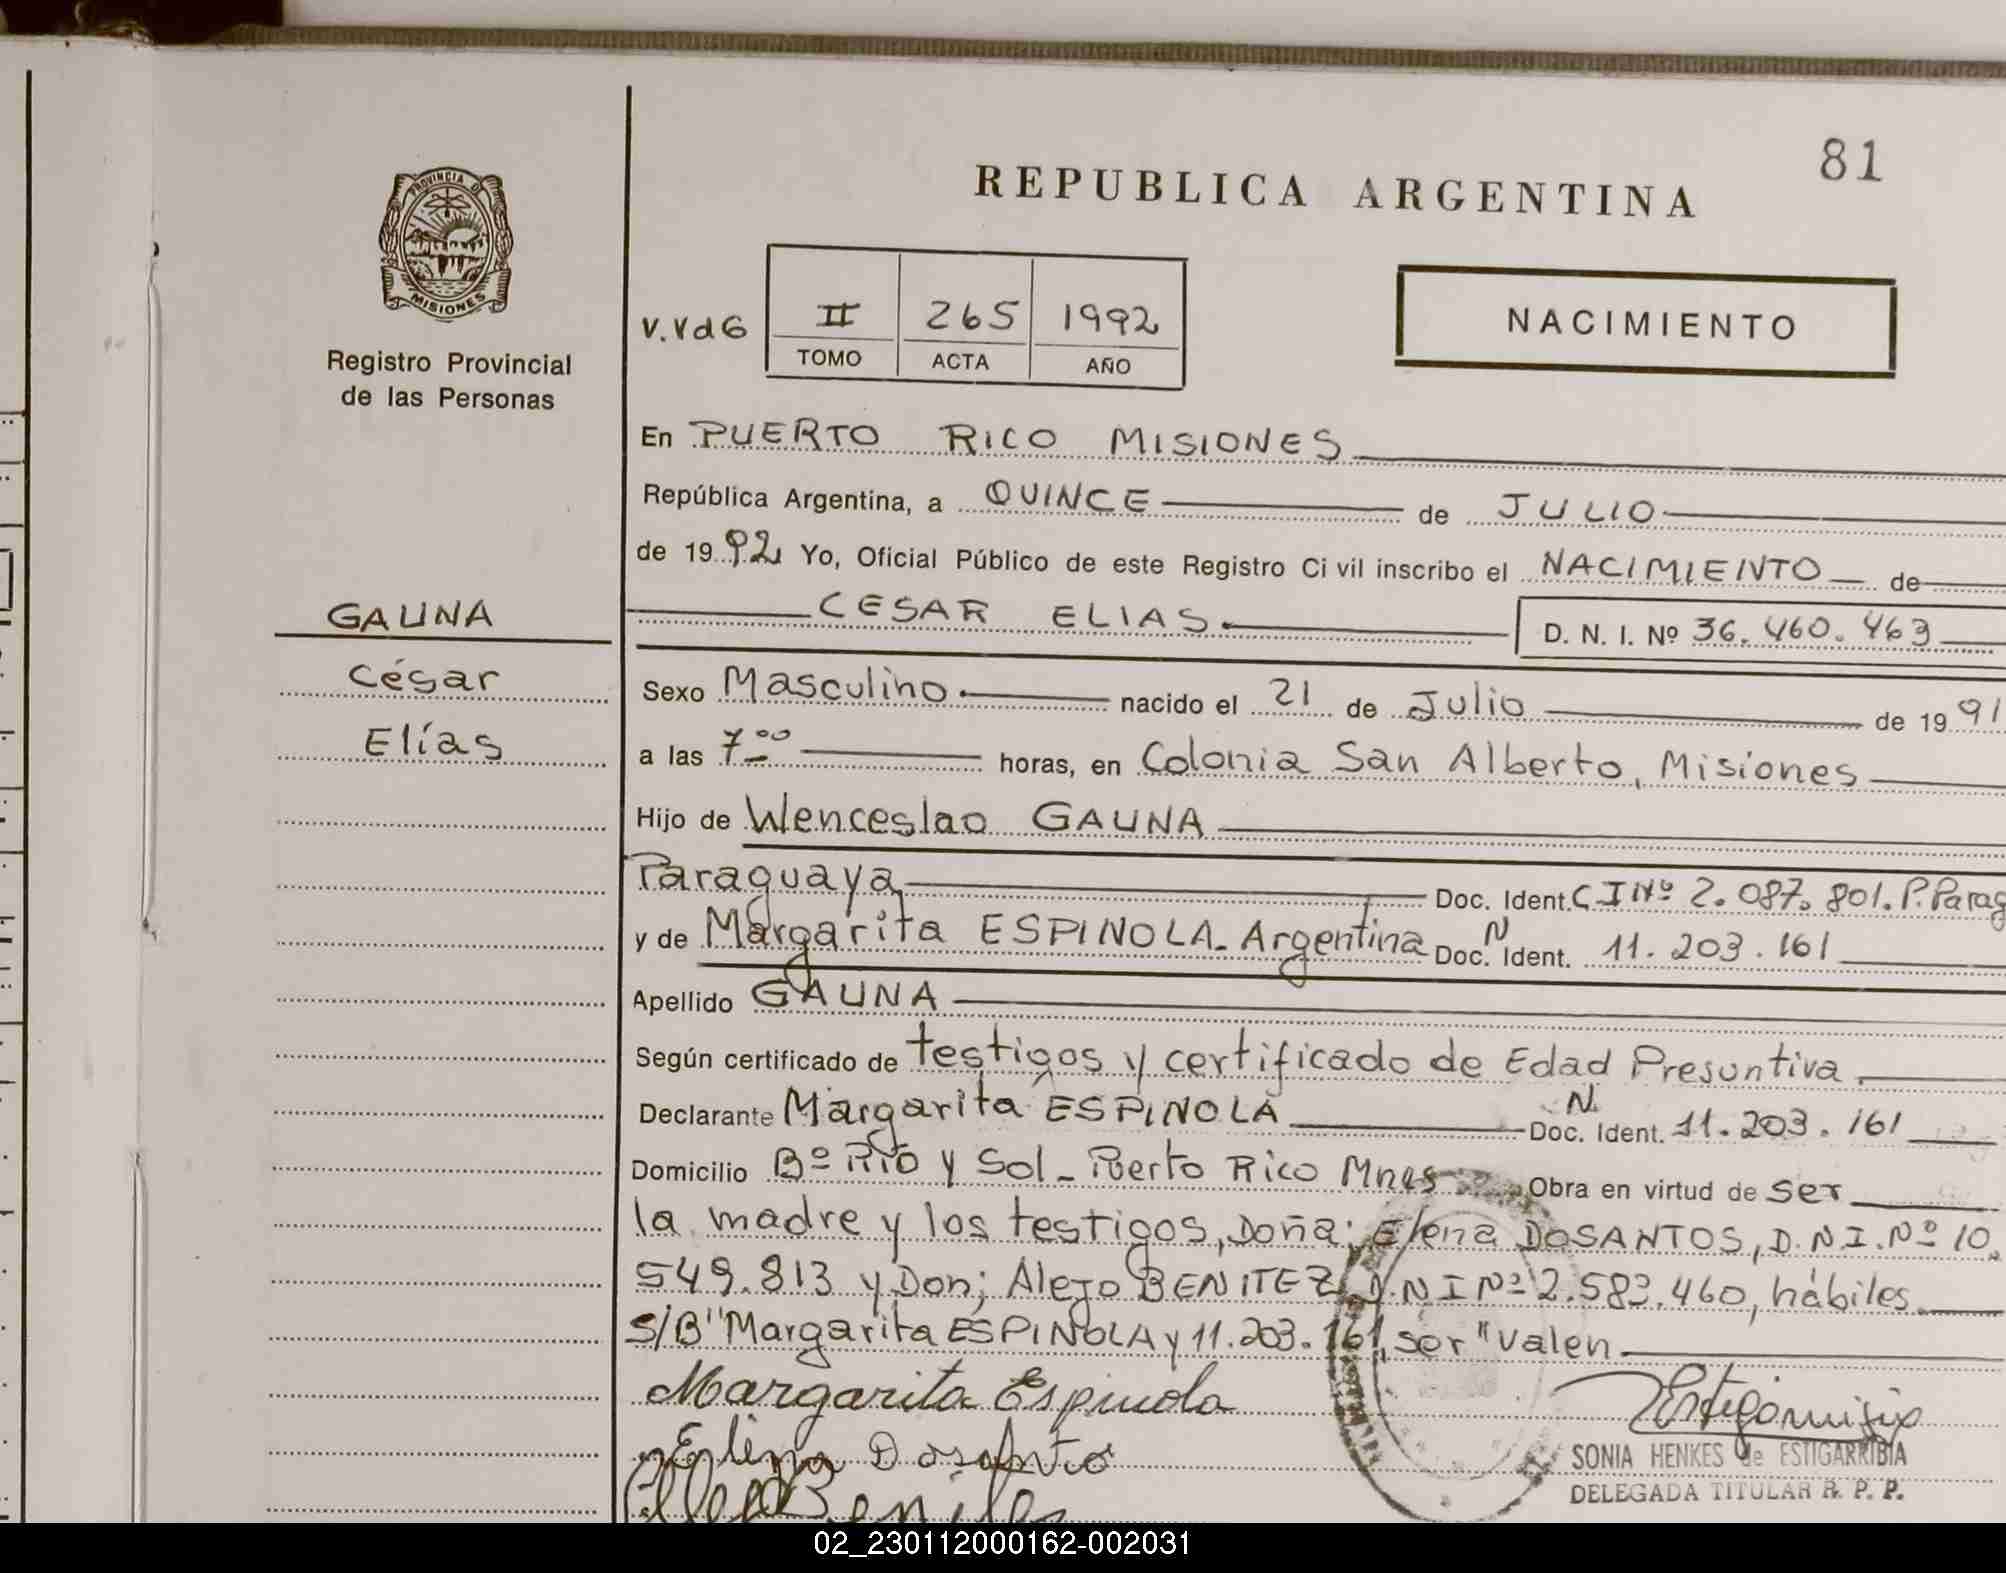 81
REPUBLICA ARGENTINA
PROVINCIA DE
MISIONES
Registro Provincial
de las Personas
V.VdG
II 265 1992
TOMO ACTA AÑO
NACIMIENTO
GAUNA
César
Elías
En PUERTO RICO MISIONES
República Argentina, a QUINCE de JULIO
de 1992 Yo, Oficial Público de este Registro Civil inscribo el NACIMIENTO de
CESAR ELIAS. D. N. I. Nº 36.460.463
Sexo Masculino. nacido el 21 de Julio de 1991
a las 7 00 horas, en Colonia San Alberto, Misiones
Hijo de Wenceslao GAUNA
Paraguaya Doc. Ident. C I Nº 2.087.801. P. Parag
y de Margarita ESPINOLA. Argentina Doc. N Ident. 11.203.161
Apellido GAUNA
Según certificado de testigos y certificado de Edad Presuntiva.
Declarante Margarita ESPINOLA Doc. N Ident. 11.203.161
Domicilio Bº RIO y Sol - Puerto Rico Mnes Obra en virtud de ser
la madre y los testigos, Doña; Elena DOSANTOS, D.N.I. Nº 10.
549.813 y Don; Alejo BENITEZ, D.N I Nº 2.583.460, hábiles.
S/B "Margarita ESPINOLA y 11.203.161, ser" valen
Margarita Espinola
Dosanto
SONIA HENKES de ESTIGARRIBIA
DELEGADA TITULAR R. P. P.
02_230112000162-002031